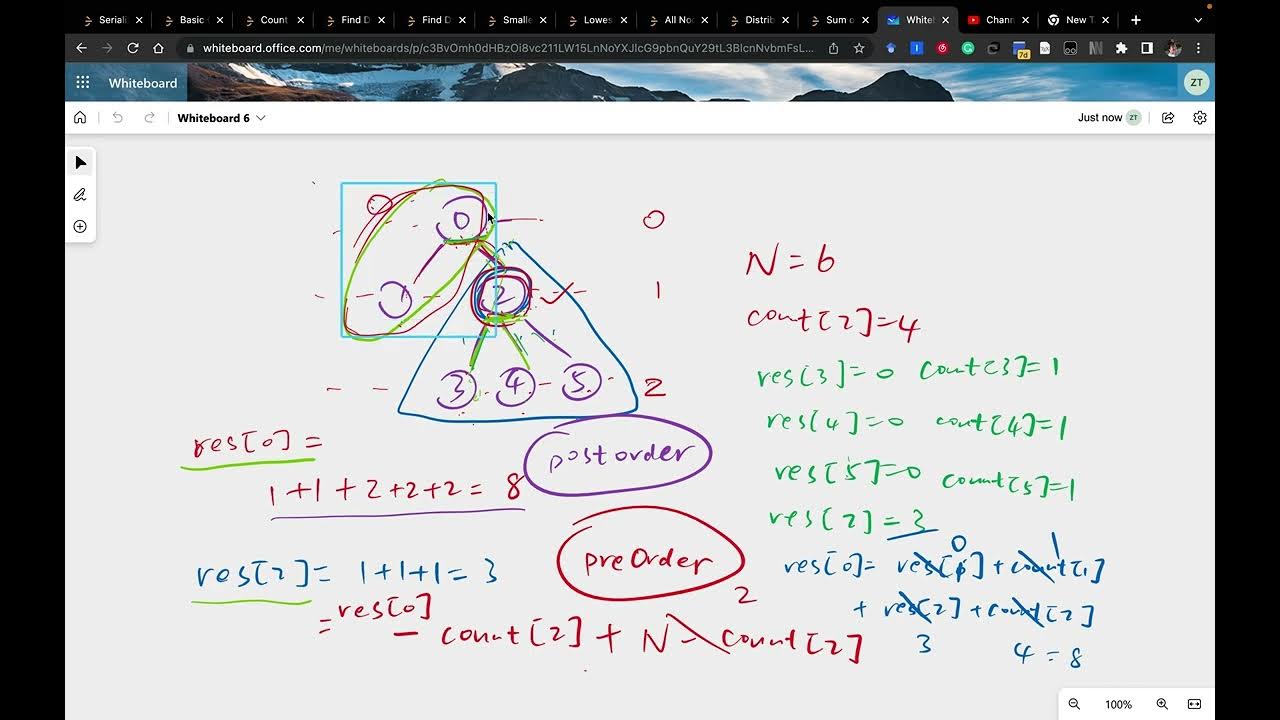 Seriali
Basic
Count
Find D
Find D
Smalle
Lowes
All Noc
Distrib
Sum o
Whitel
Chann
New T
whiteboard.office.com/me/whiteboards/p/c3BvOmh0dHBzOi8vc211LW15LnNoYXJlcG9pbnQuY29tL3BlcnNvbmFsL...
7d
Whiteboard
ZT
Whiteboard 6
Just now ZT
0 0
N = 6
1 2 1
count[2]=4
res[3]=0 count[3]=1
3 4 5 2
res[4]=0 count[4]=1
res[0] =
postorder
res[5]=0 count[5]=1
1+1+2+2+2= 8
res[2]=3
preOrder
0 1
res[0]= res[1]+count[1]
res[2]= 1+1+1= 3
2
+ res[2]+count[2]
= res[0]
- count[2] + N - count[2]
3 4 = 8
100%